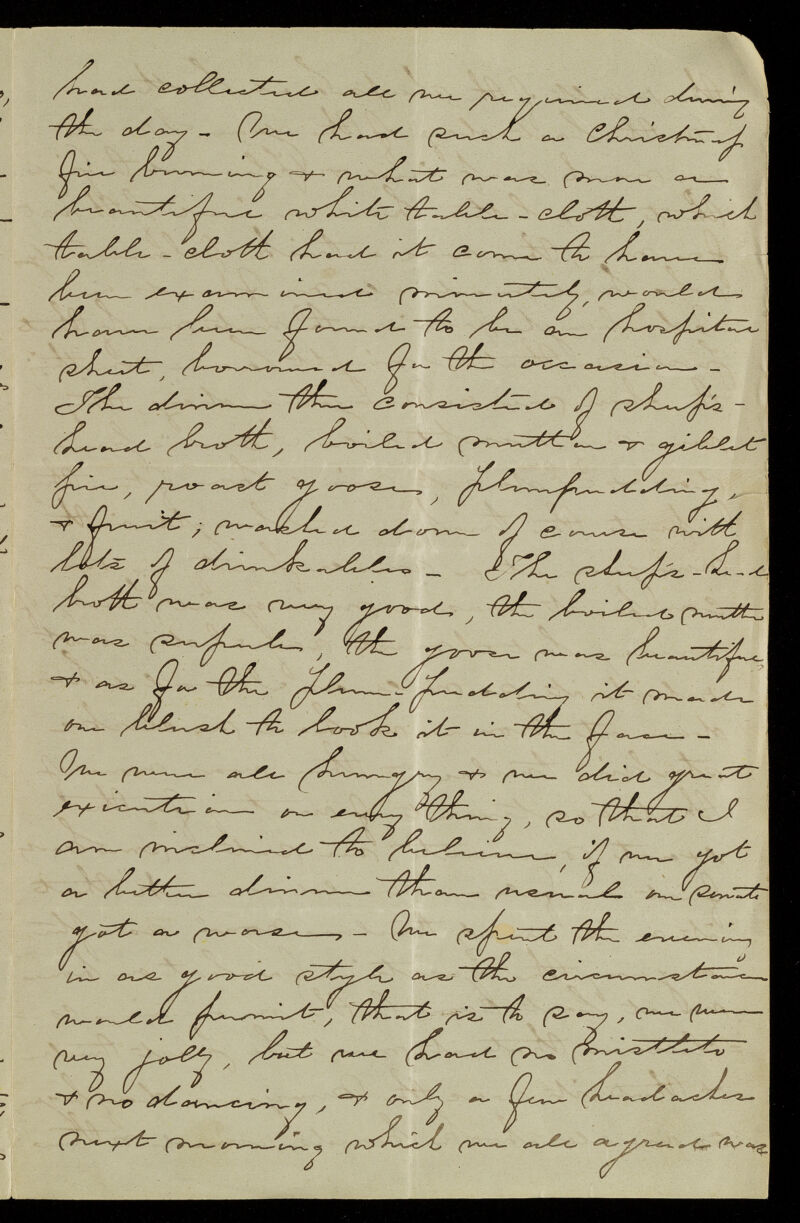 had collected all we required during
the day - We had such a Christmas
fire burning & what was more a
beautiful white table-cloth, which
table-cloth had it come to have
been examined minutely, would
have been found to be an hospital
sheet, borrowed for the occasion -
The dinner then consisted of sheep's-
head broth, boiled mutton & giblet
pie, roast goose, plumpudding,
& fruit; washed down of course with
lots of drinkables - The sheep's-head
broth was very good, the boiled mutton
was superb, the goose was beautiful,
& as for the plum-pudding it made
one blush to look it in the face -
We were all hungry & we did great
execution on every thing, so that I
am inclined to believe, if we got
a better dinner than usual our servants
got a worse - We spent the evening
in as good style as the circumstances
would permit, that is to say, we were
very jolly, but we had no mistleto
& no dancing, & only a few headaches
next morning which we all agreed was